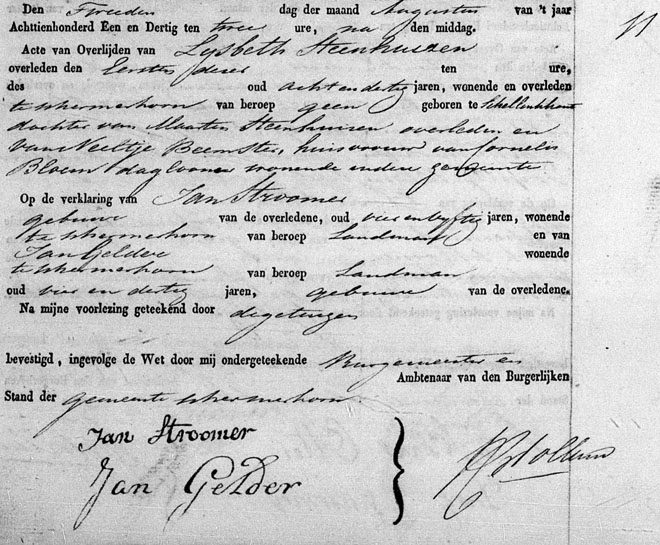 Den Tweeden dag der maand Augustus van 't jaar
Achttienhonderd Een en Dertig ten twee ure, na den middag.
Acte van Overlijden van Lijsbeth Steenhuizen
overleden den Eersten dezer ten ure,
des oud acht en dertig jaren, wonende en overleden
te Schermerhorn van beroep geen geboren te Schellinkhout
dochter van Maarten Steenhuizen overleden en
van Neeltje Beemster, huisvrouw van Cornelis
Bloem dagloner wonende in deze gemeente
Op de verklaring van Jan Stroomer
gebuur van de overledene, oud vier en vyftig jaren, wonende
te Schermerhorn van beroep Landman en van
Jan Gelder wonende
te Schermerhorn van beroep Landman
oud vier en dertig jaren, gebuur van de overledene.
Na mijne voorlezing geteekend door de getuigen
bevestigd, ingevolge de Wet door mij ondergeteekende Burgemeester en
Ambtenaar van den Burgerlijken
Stand der gemeente Schermerhorn
Jan Stroomer
Jan Gelder